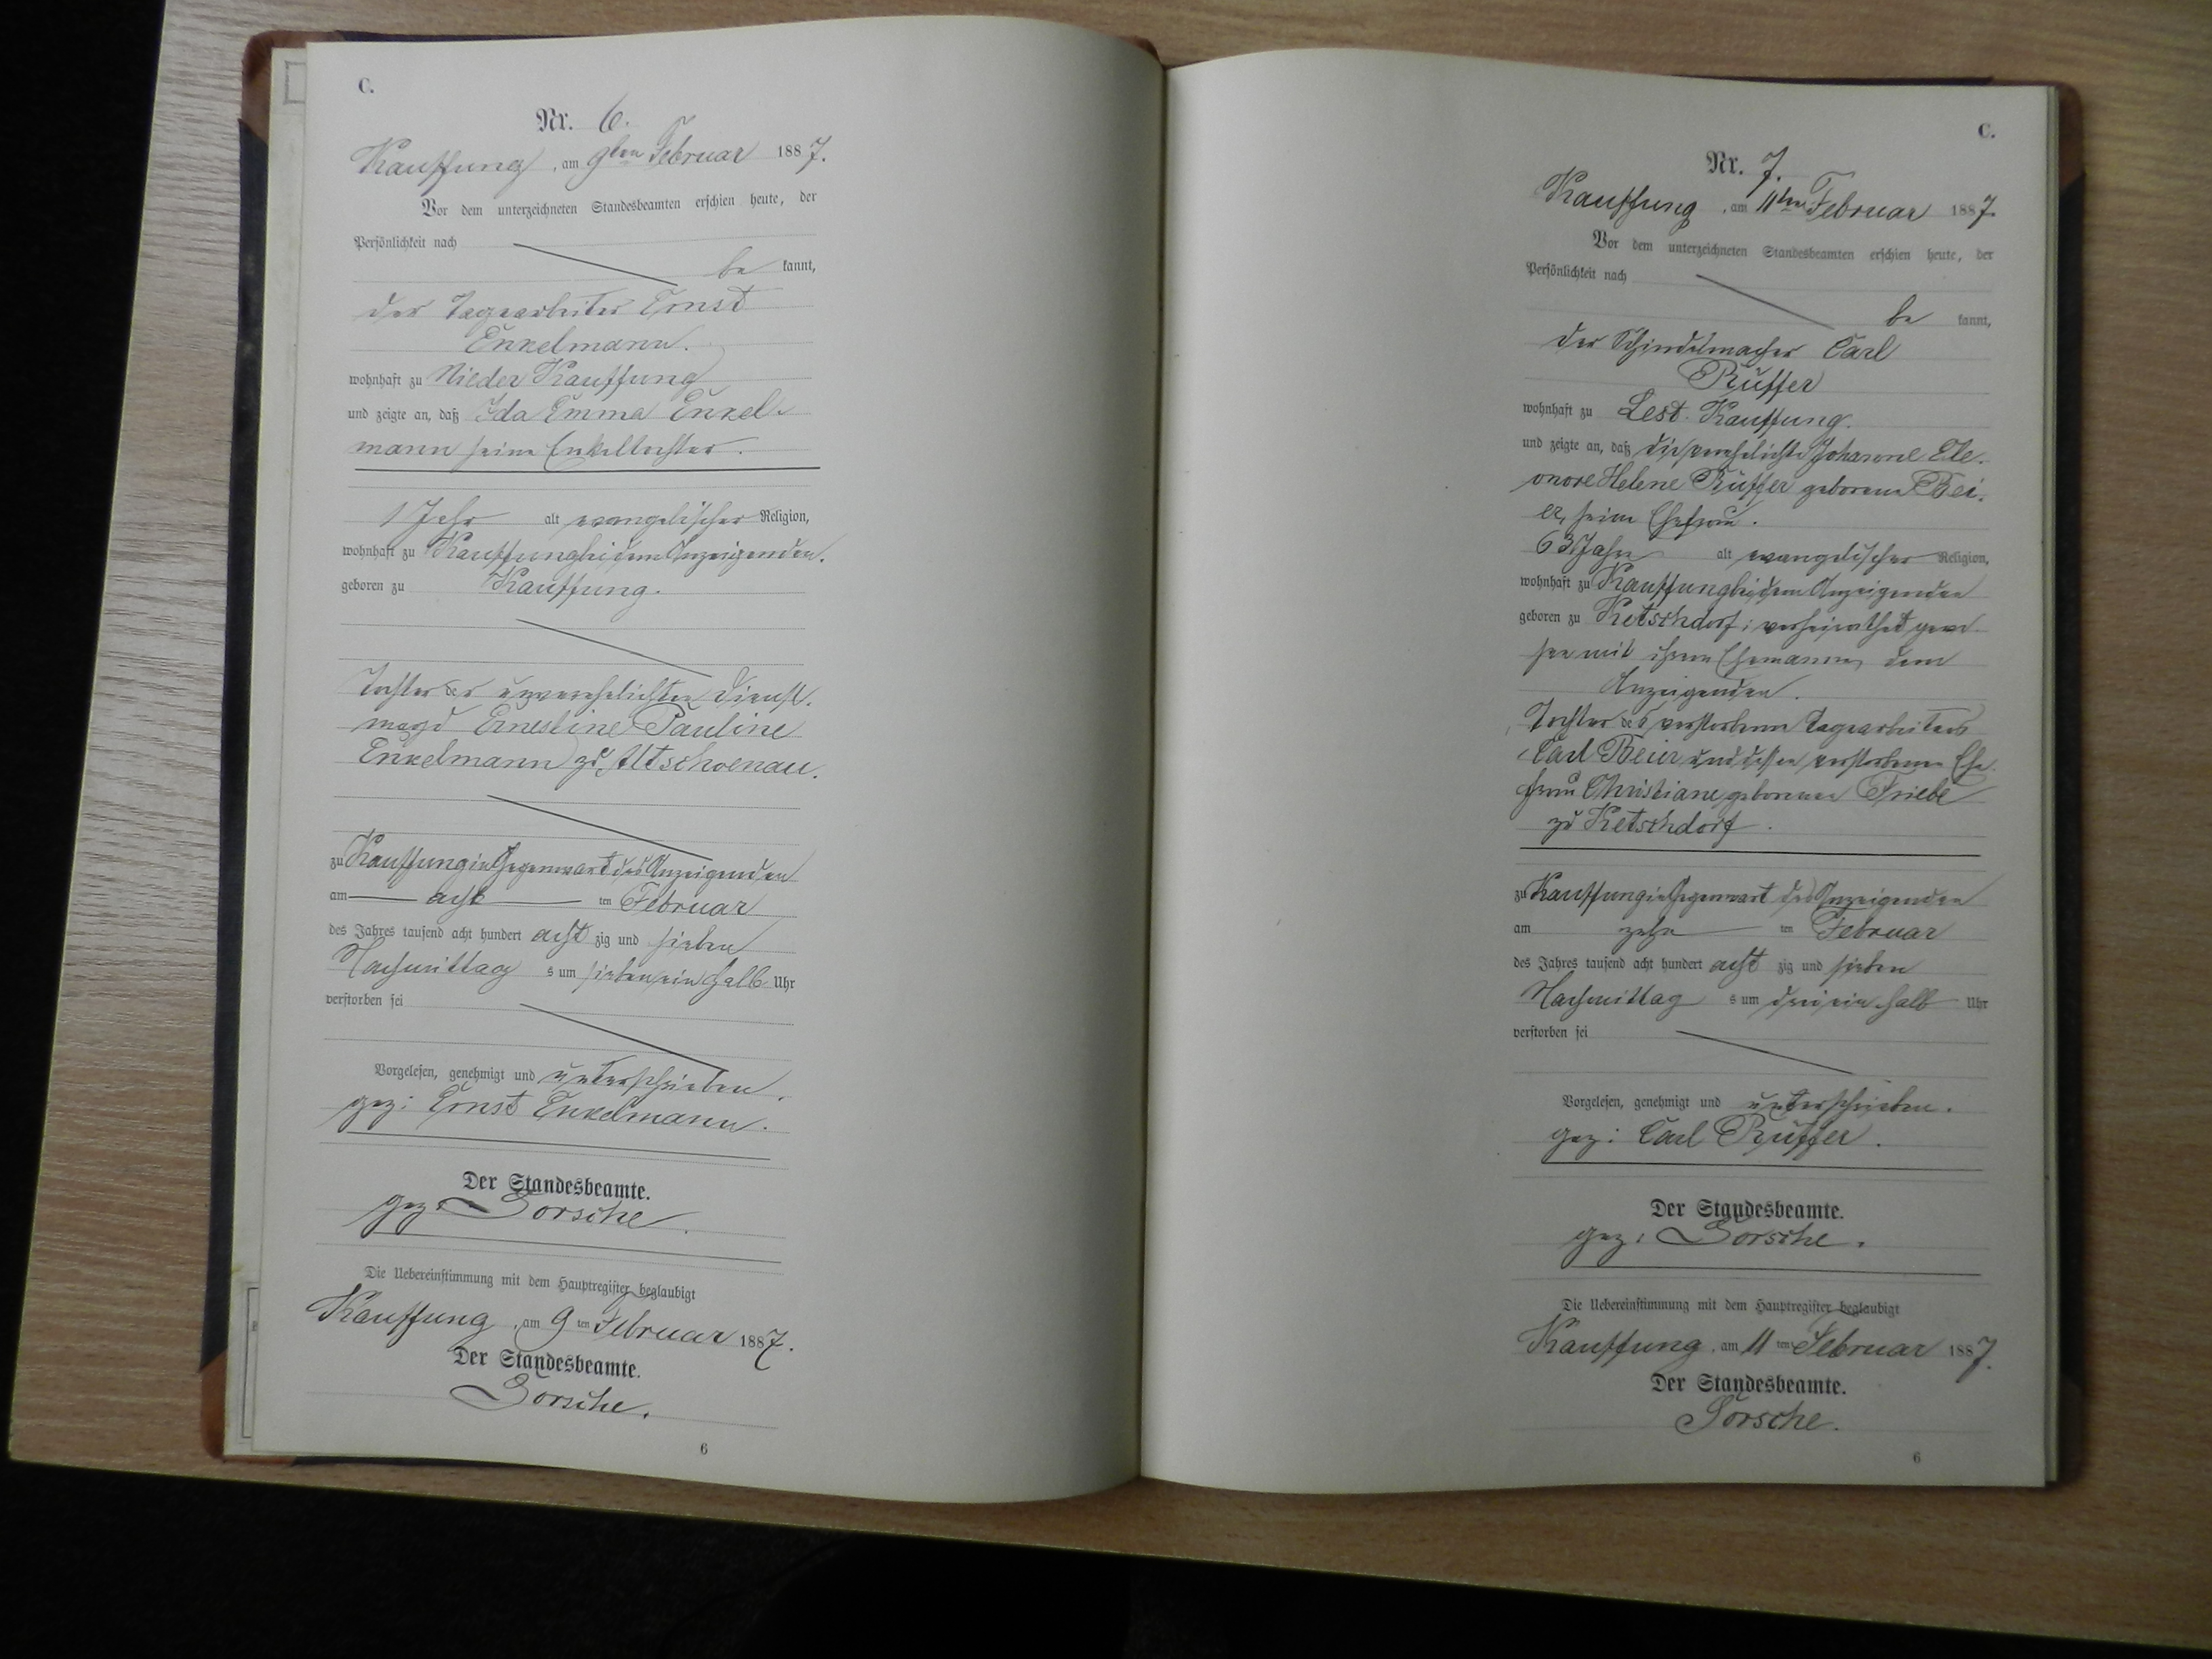 C.
Nr. 6.
Kauffung, am 9ten Februar 1887.
Vor dem unterzeichneten Standesbeamten erschien heute, der
Persönlichkeit nach
be kannt,
der Tagearbeiter Ernst
Enkelmann.
wohnhaft zu Nieder Kauffung
und zeigte an, daß Ida Emma Enkel-
mann seine Enkeltochter.
1 Jahr alt evangelischer Religion,
wohnhaft zu Kauffung bei dem Anzeigenden.
geboren zu Kauffung.
Tochter der unverehelichten Dienst-
magd Ernestine Pauline
Enkelmann zu Altschoenau.
zu Kauffung in Gegenwart des Anzeigenden
am acht ten Februar
des Jahres tausend acht hundert acht zig und sieben
Nachmittag s um sieben ein halb Uhr
verstorben sei
Vorgelesen, genehmigt und unterschrieben.
gez: Ernst Enkelmann.
Der Standesbeamte.
gez: Gorsche.
Die Uebereinstimmung mit dem Hauptregister beglaubigt
Kauffung, am 9 ten Februar 1887.
Der Standesbeamte.
Gorsche.
6
C.
Nr. 7.
Kauffung, am 11ten Februar 1887.
Vor dem unterzeichneten Standesbeamten erschien heute, der
Persönlichkeit nach
be kannt,
der Schindelmacher Carl
Rüffer
wohnhaft zu Lest. Kauffung.
und zeigte an, daß die verehelichte Johanne Ele-
onore Helene Rüffer geborene Bei-
er, seine Ehefrau.
63 Jahre alt evangelischer Religion,
wohnhaft zu Kauffung bei dem Anzeigenden
geboren zu Ketschdorf; verheirathet gewe-
sen mit ihrem Ehemanne, dem
Anzeigenden.
Tochter des verstorbenen Tagearbeiters
Carl Beier und dessen verstorbenen Ehe-
frau Christiane geborenen Friebe
zu Ketschdorf.
zu Kauffung in Gegenwart des Anzeigenden
am zehn ten Februar
des Jahres tausend acht hundert acht zig und sieben
Nachmittag s um drei ein halb Uhr
verstorben sei
Vorgelesen, genehmigt und unterschrieben.
gez: Carl Rüffer.
Der Standesbeamte.
gez: Gorsche.
Die Uebereinstimmung mit dem Hauptregister beglaubigt
Kauffung, am 11 ten Februar 1887.
Der Standesbeamte.
Gorsche.
6